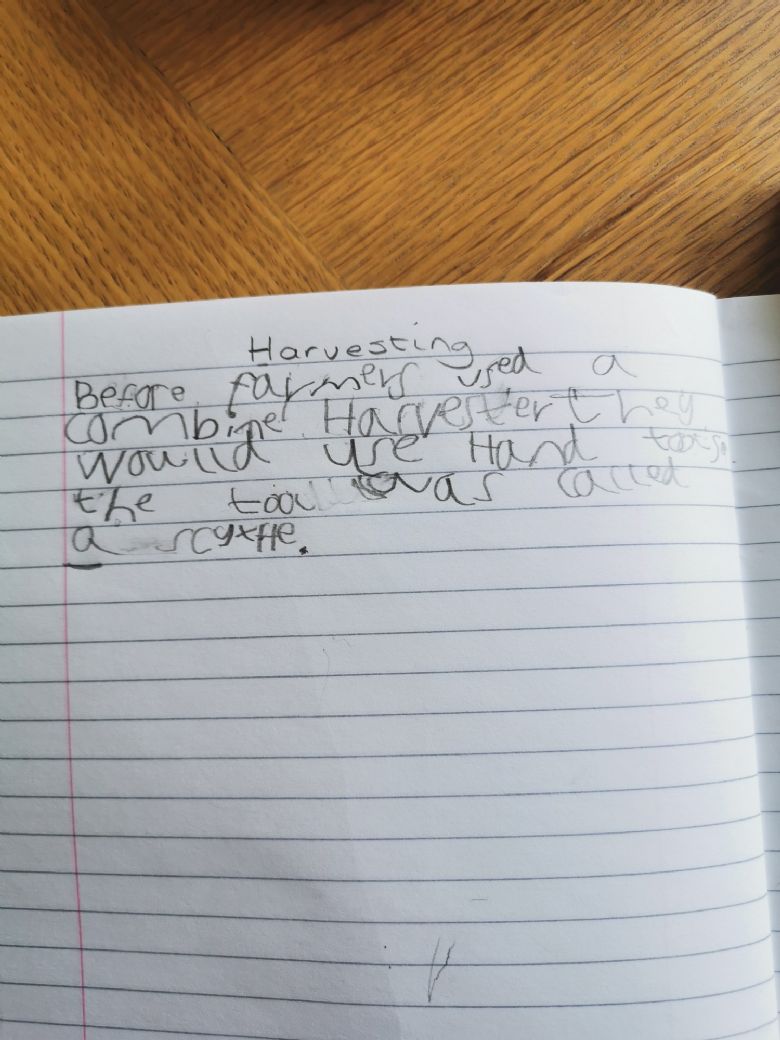 Harvesting
Before farmers used a
combine Harvester they
would use Hand tools.
the tool was called
a scytHe.